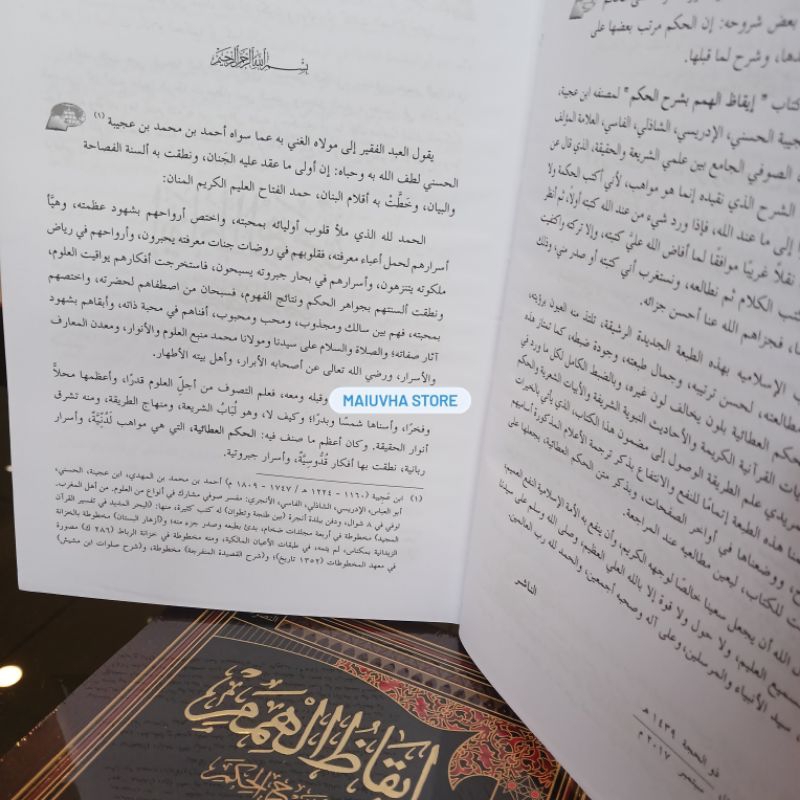 بعض شروحه: إن الحكم مرتب بعضها على
وشرح لما قبلها.
كتاب " إيقاظ الهمم بشرح الحكم" لمصنفه ابن عجيبة،
الحسني، الإدريسي، الشاذلي، الفاسي، العلامة المؤلف
الصوفي الجامع بين علمي الشريعة والحقيقة، الذي قال عن
الشرح الذي نقيده إنما هو مواهب، لأني أكتب الحكمة ولا
إلى ما عند الله، فإذا ورد شيء من عند الله كتبته أولًا، ثم أنظر
نقلًا غريبًا موافقًا لما أفاض الله عليّ كتبته، وإلا تركته واكتفيت
الكلام ثم نطالعه، ونستغرب أني كتبته أو صدر مني، وذلك
فجزاهم الله عنا أحسن جزائه.
الإسلاميه بهذه الطبعة الجديدة الرشيقة، تلتذ منه العيون برؤيته،
لحسن ترتيبه، وجمال طبعته، وجودة ضبطه، كما تمتاز هذه
الحكم العطائية بلون يخالف لون غيره، وبالضبط الكامل لكل ما ورد في
القرآنية الكريمة والأحاديث النبوية الشريفة والأبيات الشعرية والحكم
علم الطريقة الوصول إلى مضمون هذا الكتاب، الذي يأتي بالخيرات
هذه الطبعة إتمامًا للنفع والانتفاع بذكر ترجمة الأعلام المذكورة أسامیهم
ووضعناها في أواخر الصفحات، وبذكر متن الحكم العطائية، يجعلها على
للكتاب، ليعين مطالعيه عند المراجعة.
الله أن يجعل سعينا خالصًا لوجهه الكريم، وأن ينفع به الأمة الإسلامية النفع العميم،
السميع العليم، ولا حول ولا قوة إلا بالله العلي العظيم، وصلى الله وسلم على سيدنا
سيد الأنبياء والمرسلين، وعلى آله وصحبه أجمعين، والحمد لله رب العالمين.
الناشر
ذو الحجة ١٤٣٩ هـ
سبتمبر ٢٠١٧ م
بسم الله الرحمن الرحيم
يقول العبد الفقير إلى مولاه الغني به عما سواه أحمد بن محمد بن عجيبة (١)
الحسني لطف الله به وحباه: إن أولى ما عقد عليه الجَنان، ونطقت به ألسنة الفصاحة
والبيان، وخَطَّتْ به أقلام البنان، حمد الفتاح العليم الكريم المنان:
الحمد لله الذي ملأ قلوب أوليائه بمحبته، واختص أرواحهم بشهود عظمته، وهيَّأ
أسرارهم لحمل أعباء معرفته، فقلوبهم في روضات جنات معرفته يحبرون، وأرواحهم في رياض
ملكوته يتنزهون، وأسرارهم في بحار جبروته يسبحون، فاستخرجت أفكارهم يواقيت العلوم،
ونطقت ألسنتهم بجواهر الحكم ونتائج الفهوم، فسبحان من اصطفاهم لحضرته، واختصهم
بمحبته، فهم بين سالك ومجذوب، ومحب ومحبوب، أفناهم في محبة ذاته، وأبقاهم بشهود
آثار صفاته؛ والصلاة والسلام على سيدنا ومولانا محمد منبع العلوم والأنوار، ومعدن المعارف
والأسرار، ورضي الله تعالى عن أصحابه الأبرار، وأهل بيته الأطهار.
وقبله ومعه، فعلم التصوف من أجلّ العلوم قدرًا، وأعظمها محلاًّ
وفخرًا، وأسناها شمسًا وبدرًا؛ وكيف لا، وهو لُبَابُ الشريعة، ومنهاج الطريقة، ومنه تشرق
أنوار الحقيقة. وكان أعظم ما صنف فيه: الحكم العطائية، التي هي مواهب لَدُنِّيَّةٌ، وأسرار
ربانية، نطقت بها أفكار قُدُّوسِيَّةٌ، وأسرار جبروتية.
(١) ابن عَجِيبة (١١٦٠ - ١٢٢٤ هـ / ١٧٤٧ - ١٨٠٩ م) أحمد بن محمد بن المهدي، ابن عجيبة، الحسني،
أبو العباس، الإدريسي، الشاذلي، الفاسي، الأنجري: مفسر صوفي مشارك في أنواع من العلوم. من أهل المغرب.
توفي في ٨ شوال، ودفن ببلدة أنجرة (بين طنجة وتطوان) له كتب كثيرة، منها: (البحر المديد في تفسير القرآن
المجيد) مخطوطة في أربعة مجلدات ضخام، بدئ بطبعه وصدر جزء منه؛ و(أزهار البستان) مخطوطة بالخزانة
الزيدانية بمكناس، لم يتمه، في طبقات الأعيان المالكية، ومنه مخطوطة في خزانة الرباط (٢٨٦ ك) مصورة
في معهد المخطوطات (١٣٥٢ تاريخ)؛ و(شرح القصيدة المنفرجة) مخطوطة، و(شرح صلوات ابن مشيش)
MAIUVHA STORE
إيقاظ الهمم
الحكم